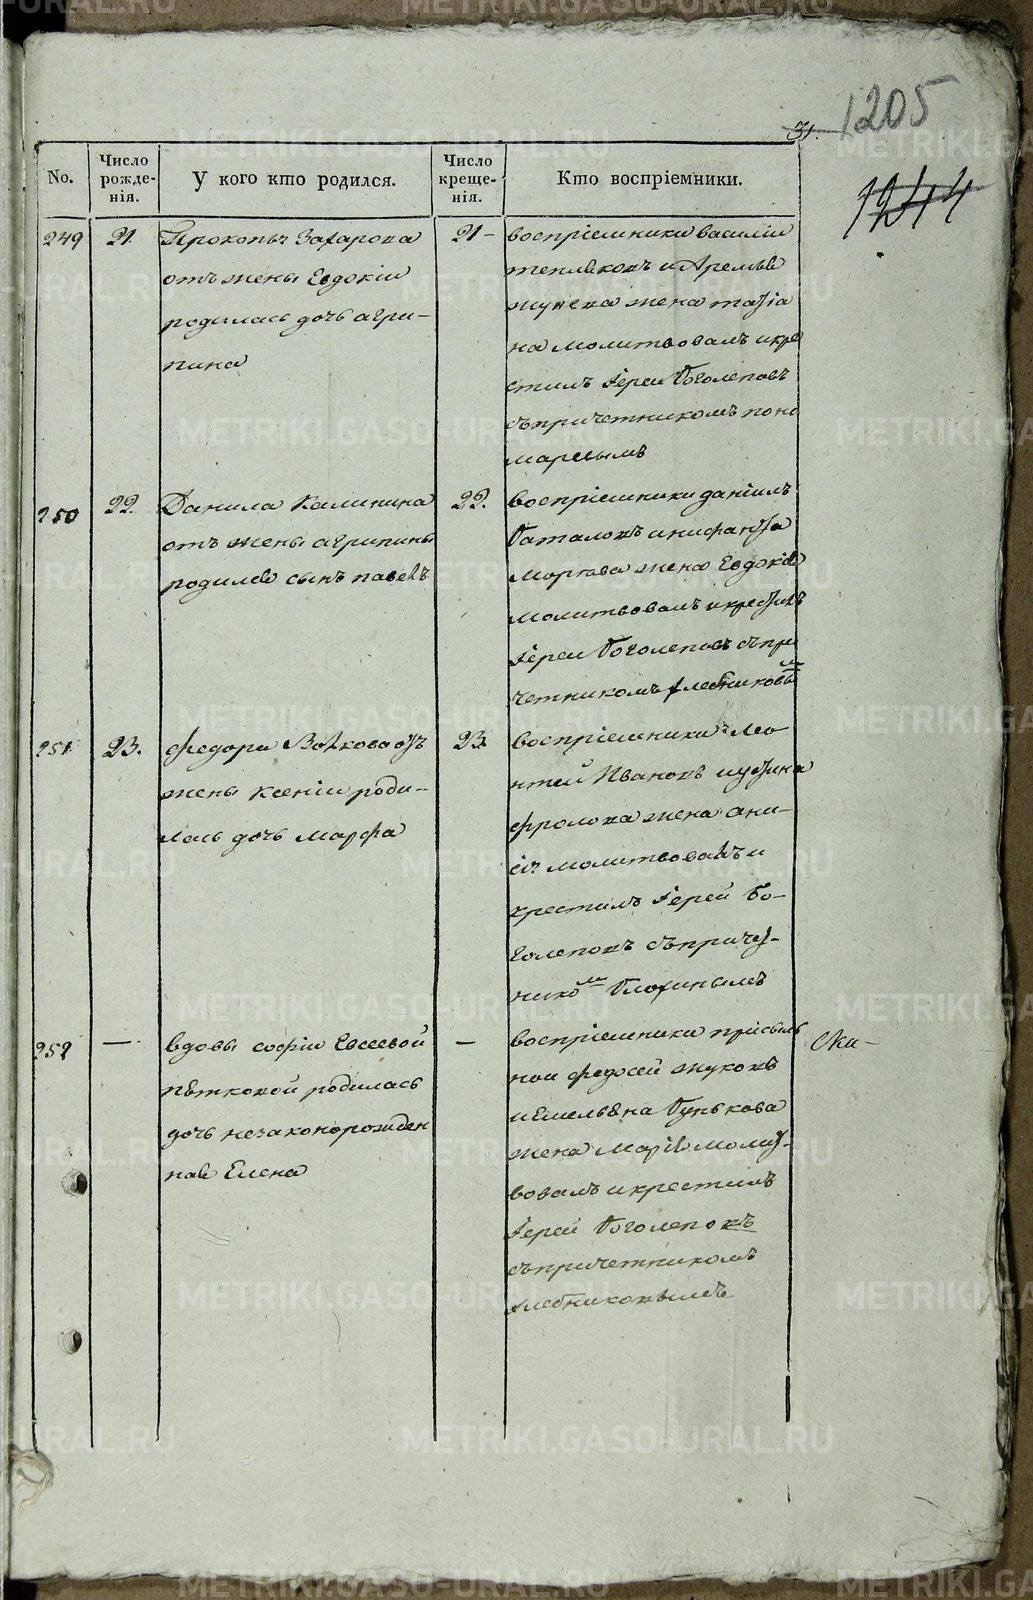 1205
31.
1944
No.
Число рожде-нія.
У кого кто родился.
Число креще-нія.
Кто воспріемники.
249
21
Прокопья Захарова
отъ жены Евдокіи
родилась дочь агри-
пина
21-
воспріемники василій
тепляковъ и
жена татіа
на молитвовалъ и кре
стилъ Іерей Боголеповъ
съ причетникомъ поно
маревымъ
250
22.
Данила Калинина
отъ жены агрипины
родился сынъ павелъ
22.
воспріемники даніилъ
Баталовъ и нифанта
жена Евдокія
молитвовалъ и крестилъ
Іерей Боголеповъ съ при
четникомъ хлебниковым
251
23.
федора Волкова отъ
жены Ксеніи роди-
лась дочь марфа
23
воспріемники Лео
нтей Ивановъ и устина
фролова жена ани-
сія молитвовалъ и
крестилъ Іерей Бо-
голеповъ съ причет-
ником Блохинымъ
252
—
вдовы софіи Евсеевой
пятковой родилась
дочь незаконорожден
ная Елена
—
воспріемники присыль
ной федосей жуковъ
и Емельяна Бунькова
жена Марія молит-
вовалъ и крестилъ
Іерей Боголеповъ
съ причетникомъ
хлебниковымъ
METRIKI.GASO-URAL.RU